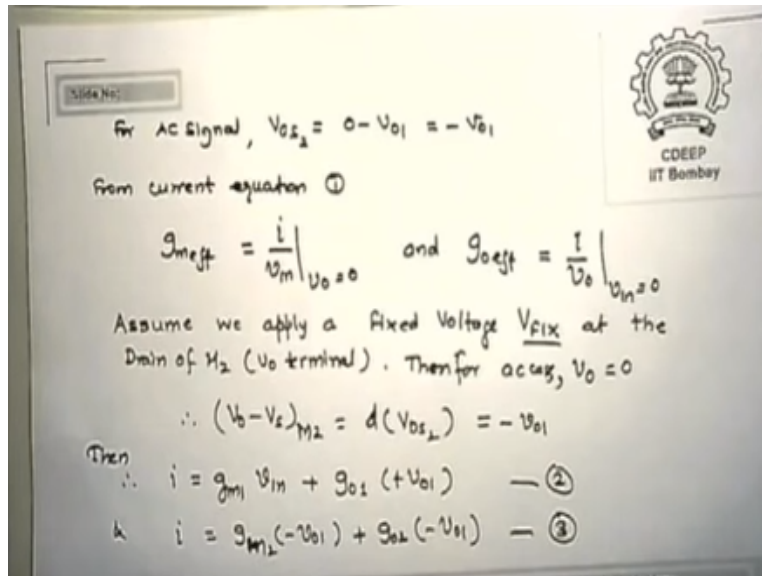 Slide No:
CDEEP
IIT Bombay
For AC Signal, VDS2 = 0 - vo1 = - vo1
From current equation ①
gmeff = i/vin | vo=0 and goeff = i/vo | vin=0
Assume we apply a Fixed Voltage VFIX at the
Drain of M2 (vo terminal). Then for ac case, vo = 0
∴ (VD-VS)M2 = d(VDS2) = - vo1
Then
∴ i = gm1 vin + go1 (+vo1) — ②
& i = gm2(-vo1) + go2(-vo1) — ③